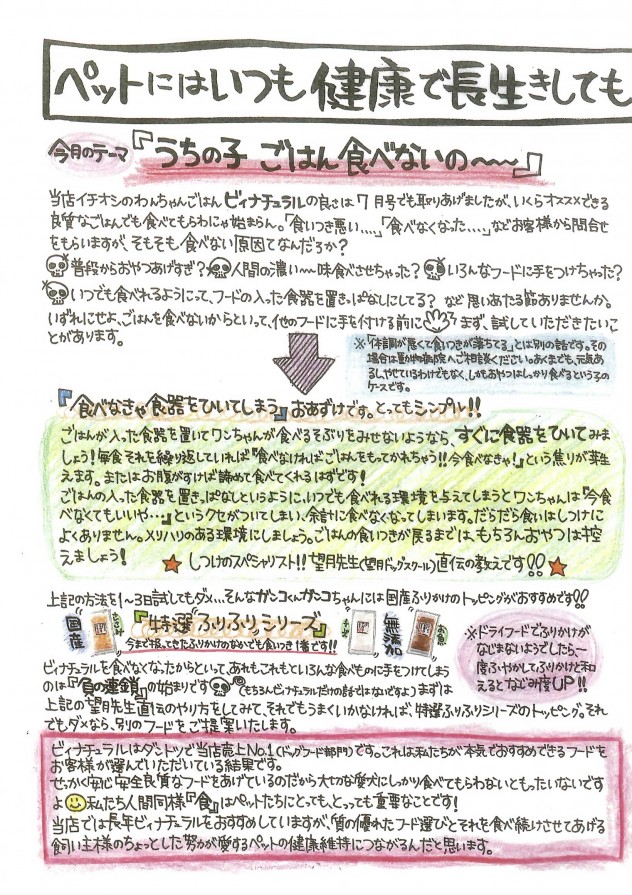 ペットにはいつも健康で長生きしても
今月のテーマ『うちの子 ごはん食べないの〜〜』
当店イチオシのわんちゃんごはんビィナチュラルの良さは7月号でも取りあげましたが、いくらオススメできる
良質なごはんでも食べてもらわにゃ始まらん。「食いつき悪い....」「食べなくなった....」などお客様から問合せ
をもらいますが、そもそも食べない原因てなんだろか?
普段からおやつあげすぎ?人間の濃い〜味食べさせちゃった?いろんなフードに手をつけちゃった?
いつでも食べれるようにって、フードの入った食器を置きっぱなしにしてる? など思いあたる節ありませんか。
いずれにせよ、ごはんを食べないからといって、他のフードに手を付ける前にまず、試していただきたいこ
とがあります。
※「体調が悪くて食いつきが落ちてる」とは別の話です。その
場合は動物病院へご相談ください。あくまでも、元気あ
るし、やせているわけでもなく、しかもおやつはしっかり食べるという子の
ケースです。
『食べなきゃ食器をひいてしまう』おあずけです。とってもシンプル!!
ごはんが入った食器を置いてワンちゃんが食べるそぶりをみせないようなら、すぐに食器をひいてみま
しょう!毎食それを繰り返していれば「食べなければごはんをもってかれちゃう!!今食べなきゃ!」という焦りが芽生
えます。またはお腹がすけば諦めて食べてくれるはずです!
ごはんの入った食器を置きっぱなしというように、いつでも食べれる環境を与えてしまうとワンちゃんは『今食
べなくてもいいや…』というクセがついてしまい、余計に食べなくなってしまいます。だらだら食いはしつけに
よくありません。メリハリのある環境にしましょう。ごはんの食いつきが戻るまでは、もちろんおやつは控
えましょう!
★しつけのスペシャリスト!!望月先生(望月ドッグスクール)直伝の教えです!!★
上記の方法を1〜3日試してもダメ...そんなガンコくんガンコちゃんには国産ふりかけのトッピングがおすすめです!!
国産 『特選ふりふりシリーズ』 無添加
今まで扱ってきたふりかけのなかでも食いつき1番です!!
※ドライフードでふりかけが
なじまないようでしたら、一
度ふやかしてふりかけと和
えるとなじみ度UP!!
ビィナチュラルを食べなくなったからといって、あれもこれもといろんな食べものに手をつけてしまう
のは『負の連鎖』の始まりです(もちろんビィナチュラルだけの話ではないですよ)まずは
上記の望月先生直伝のやり方をしてみて、それでもうまくいかなければ、特選ふりふりシリーズのトッピング。それ
でもダメなら、別のフードをご提案いたします。
ビィナチュラルはダントツで当店売上No.1(ドッグフード部門)です。これは私たちが本気でおすすめできるフードを
お客様が選んでいただいている結果です。
せっかく安心安全良質なフードをあげているのだから大切な愛犬にしっかり食べてもらわないともったいないです
よ私たち人間同様『食』はペットたちにとっても、とっても重要なことです!
当店では長年ビィナチュラルをおすすめしていますが、質の優れたフード選びとそれを食べ続けさせてあげる
飼い主様のちょっとした努力が愛するペットの健康維持につながるんだと思います。